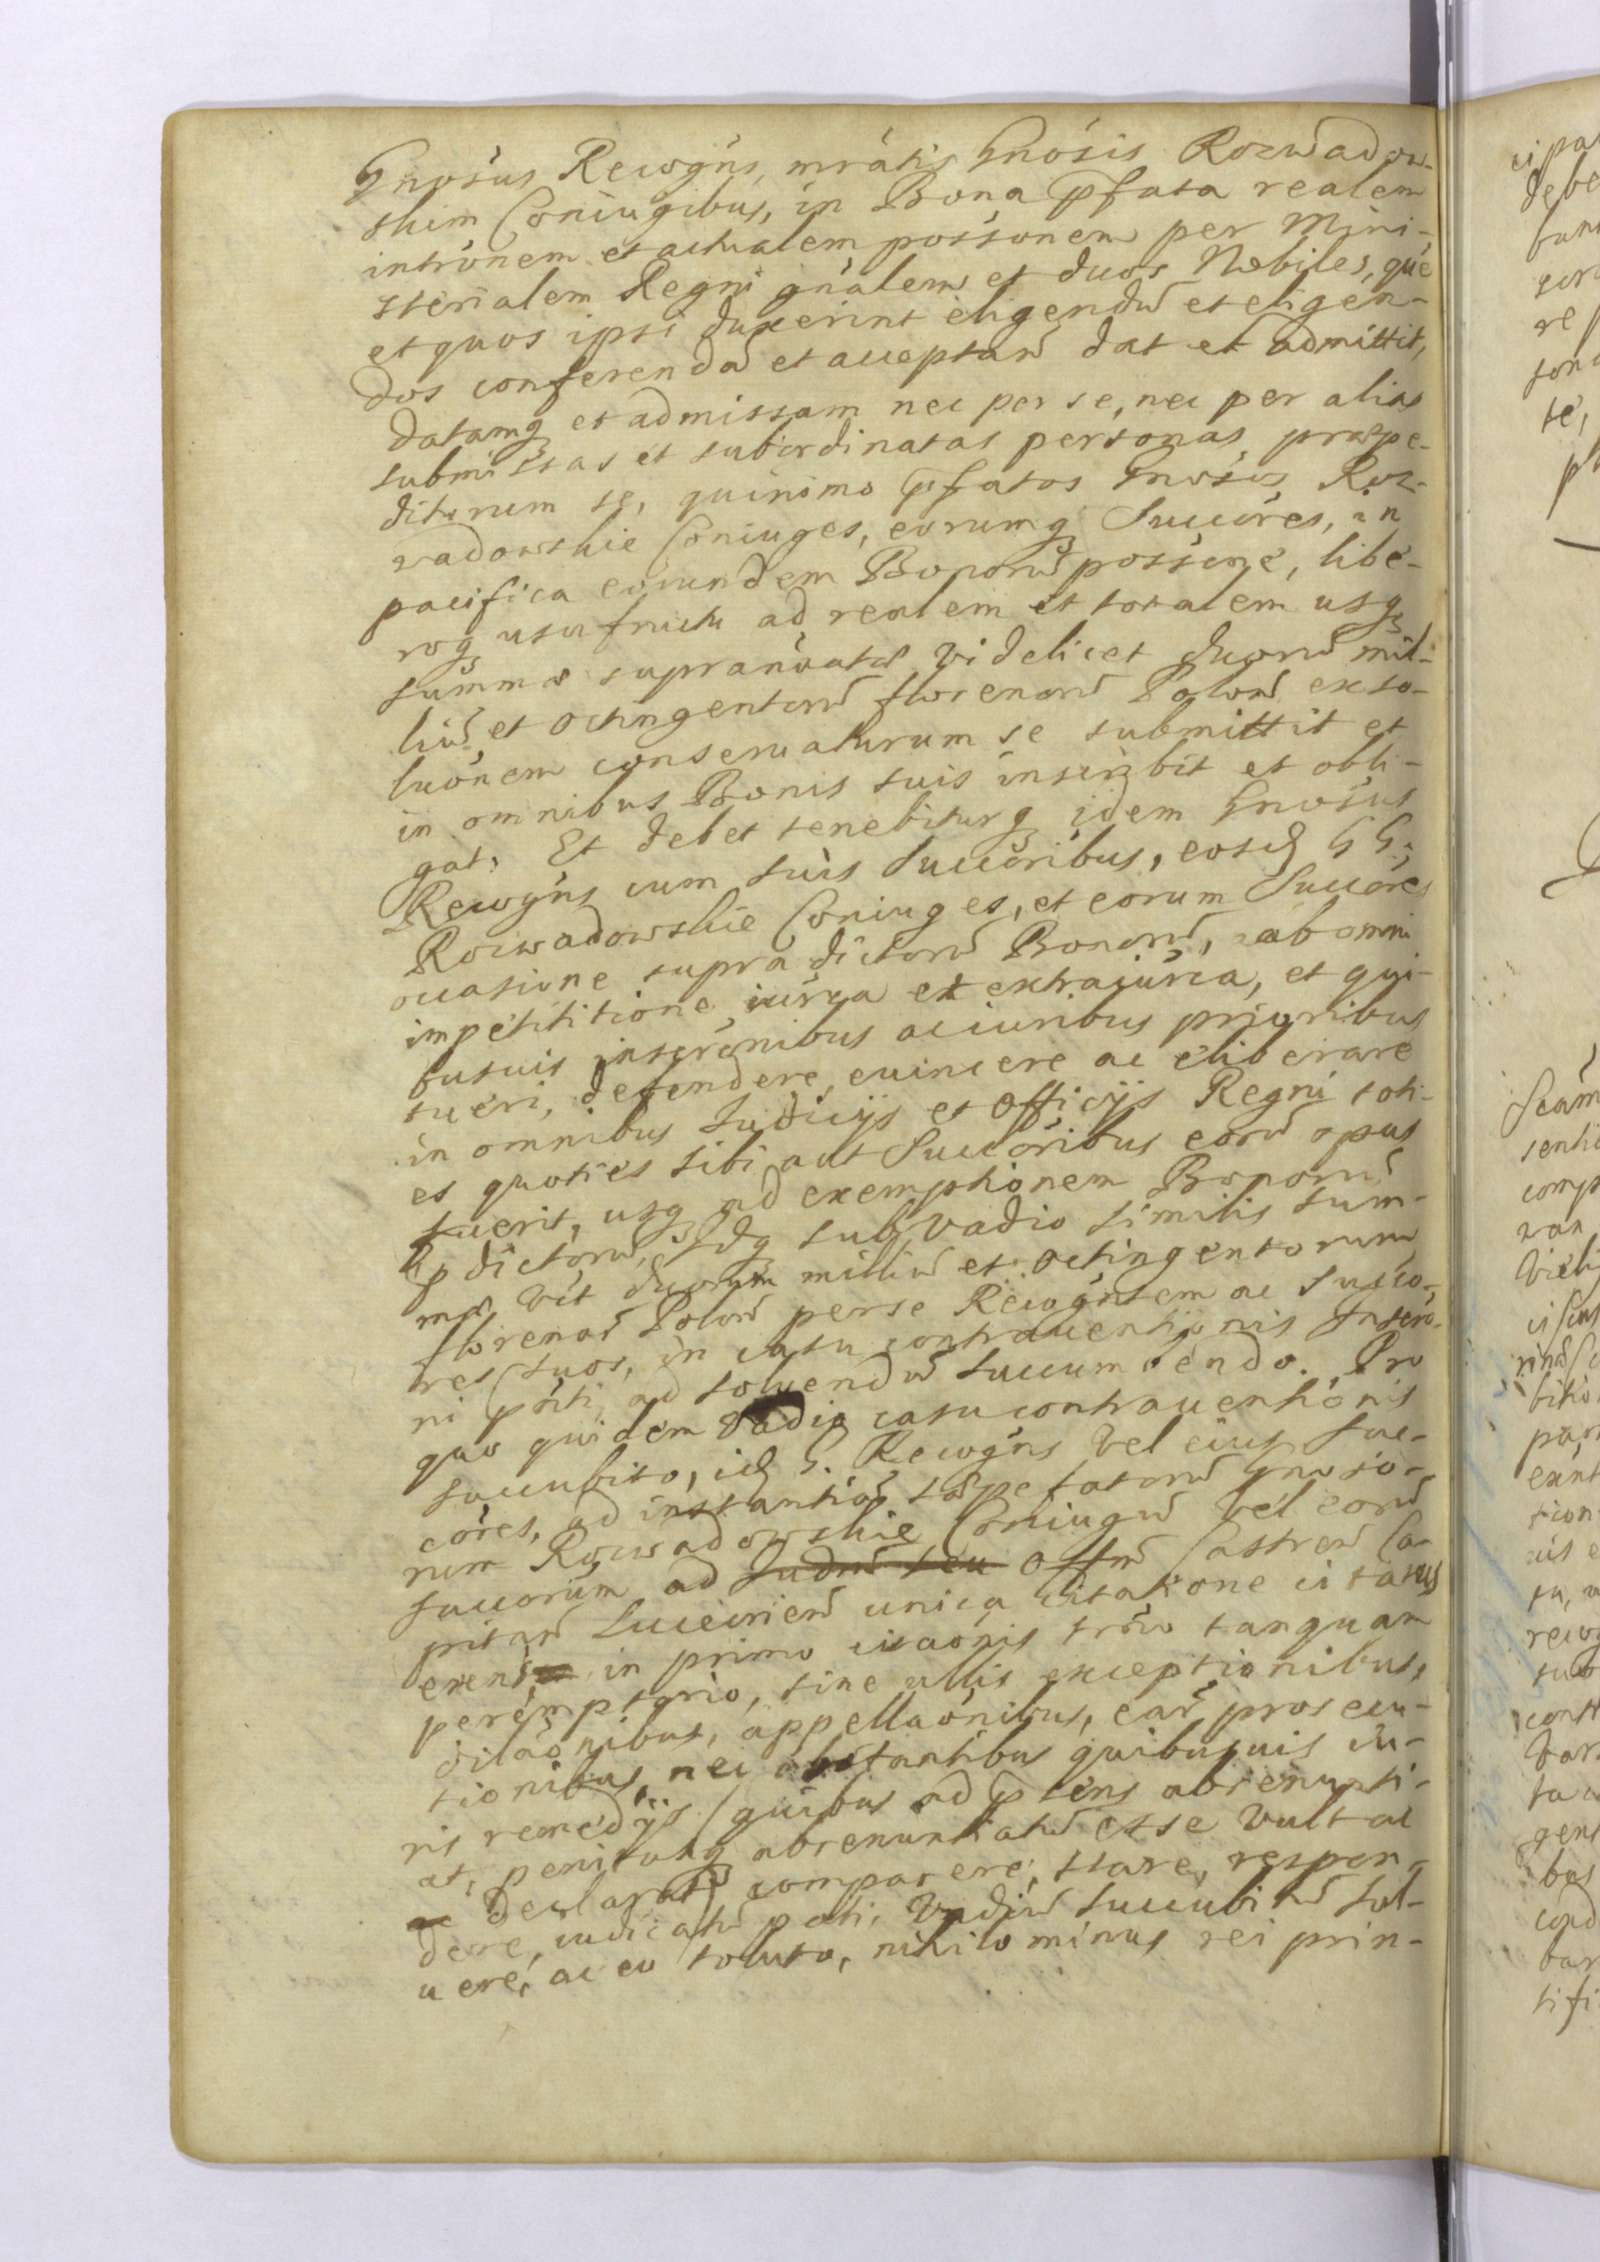 Gnosus Recogns, mratis Gnosis Rozwadow-
skim Coniugibus, in Bona pfata realem
intronem et actualem possonem per Mini-
sterialem Regni gnalem et duos Nobiles, que
et quos ipsi duxerint eligendu et eligen-
dos conferenda et acceptan dat et admittit,
datamq et admissam nec per se, nec per alias
submissas et subordinatas personas praepe-
diturum se, quinimo pfatos Gnosos Roz-
wadowskie Coniuges, eorumq Succores, in
pacifica eorundem Bonoru possone, libe-
roq usufructu ad realem et totalem usq
summae supranoatae videlicet duoru mil-
liu et octingentoru florenoru Polon exso-
luonem conseruaturum se submittit et
in omnibus Bonis suis inscribit et obli-
gat. Et debet tenebiturq idem Gnosus
Recogns cum suis Succoribus, eosd GG.
Rozwadowskie Coniuges, et eorum Succores
occasione supradictoru Bonoru, ab omni
impetititione iurca et extraiurca, et qui-
busuis inscronibus ac iuribus prioribus
tueri, defendere, euincere ac eliberare
in omnibus Judicijs et Officijs Regni toti-
es quoties sibi aut Succoribus eoru opus
fuerit, usq ad exemptionem Bonoru
pdictoru, idq sub vadio similis sum-
mae vtt duorum milliu et octingentorum
florenor Polon per se Recogntem ac Succo-
res suos, in casu contrauentionis Inscro-
ni pnti, ad soluendu succumbendo. Pro
quo quidem Vadio casu contrauentionis
succubito, id G. Recogns vel eius Suc-
cores, ad instantia saepefatoru Gnoso-
rum Rozwadowskie Coniugu vel eoru
succorum ad Judiu seu Offm Castren Ca-
pitan Luceorien unica citatione citatus
exens in primo citaonis tro tanquam
peremptorio, sine ullis exceptionibus,
dilaonibus, appellaonibus, ear prosecu-
tionibus, nec obstantibus quibusuis iu-
ris remedijs (quibus ad pntens abrenunti-
at, penitusq abrenuntiatu esse vult ac
ac declarat) comparere, stare, respon-
dere, iudicatu pati, Vadiu succubitu sol-
uere, ac eo soluto, nihilominus rei prin-